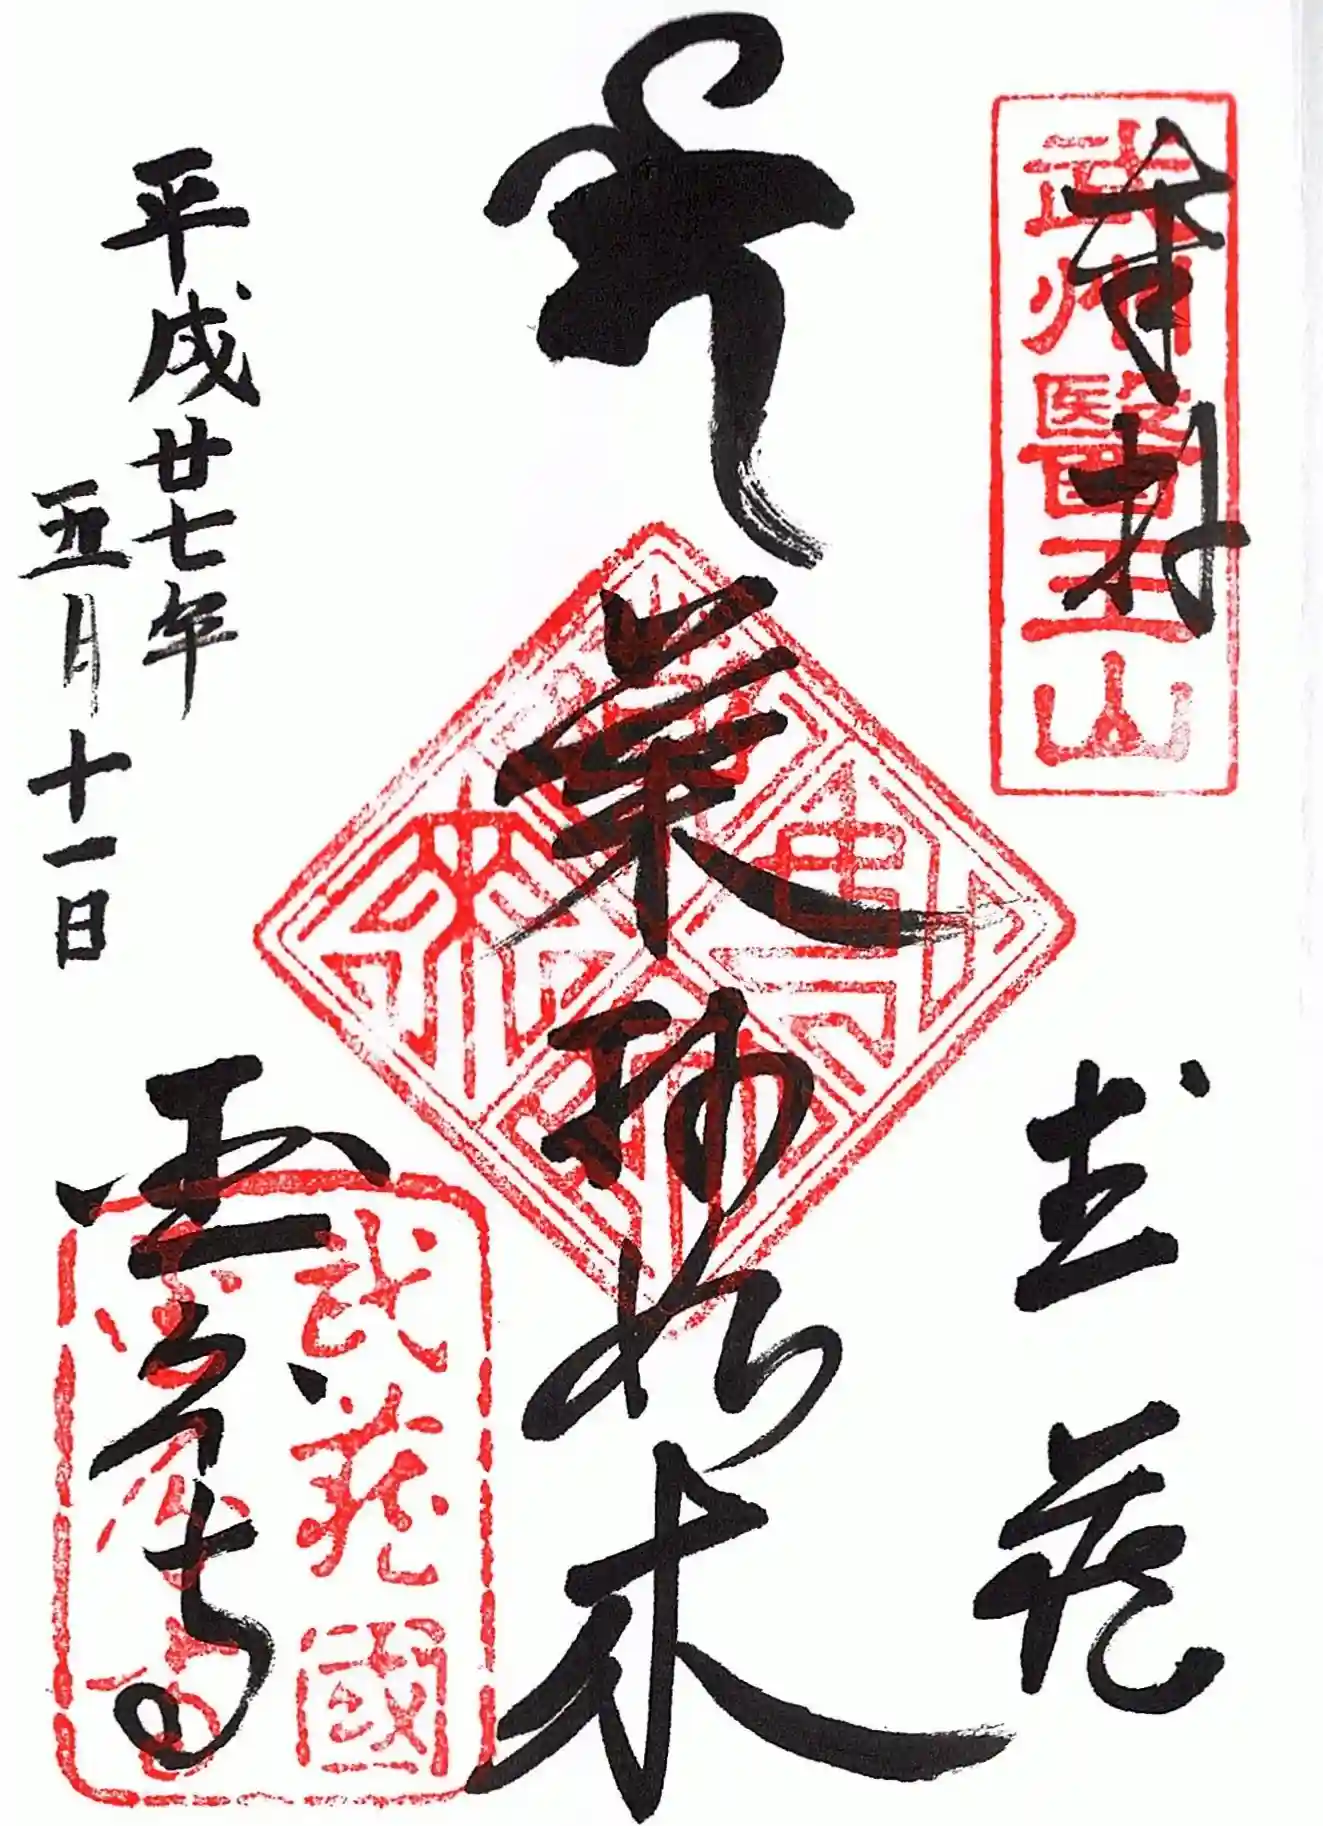 武州醫王山
奉拝
武蔵
薬師如来
平成廿七年
五月十一日
国分寺
武蔵國